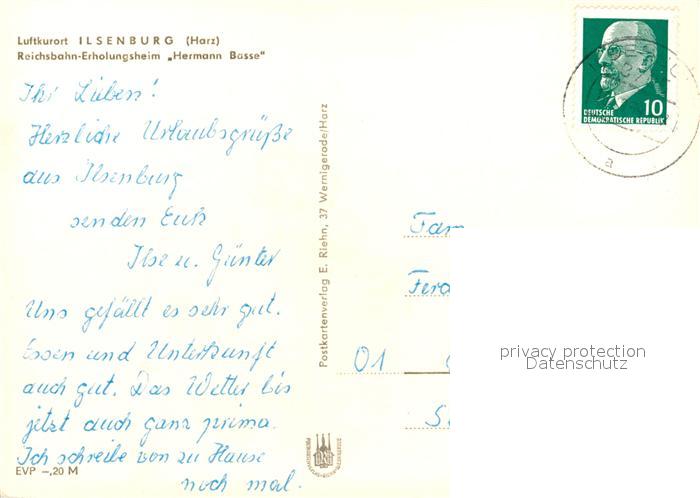 Luftkurort ILSENBURG (Harz)
Reichsbahn-Erholungsheim „Hermann Basse"
Ihr Lieben!
Herzliche Urlaubsgrüße
aus Ilsenburg
senden Euch
Ilse u. Günter
Uns gefällt es sehr gut.
Essen und Unterkunft
auch gut. Das Wetter bis
jetzt auch ganz prima.
Ich schreibe von zu Hause
noch mal.
EVP –,20 M
Postkartenverlag E. Riehn, 37 Wernigerode/Harz
10
DEUTSCHE
DEMOKRATISCHE REPUBLIK
a
Fam
Ferd
01
privacy protection
Datenschutz